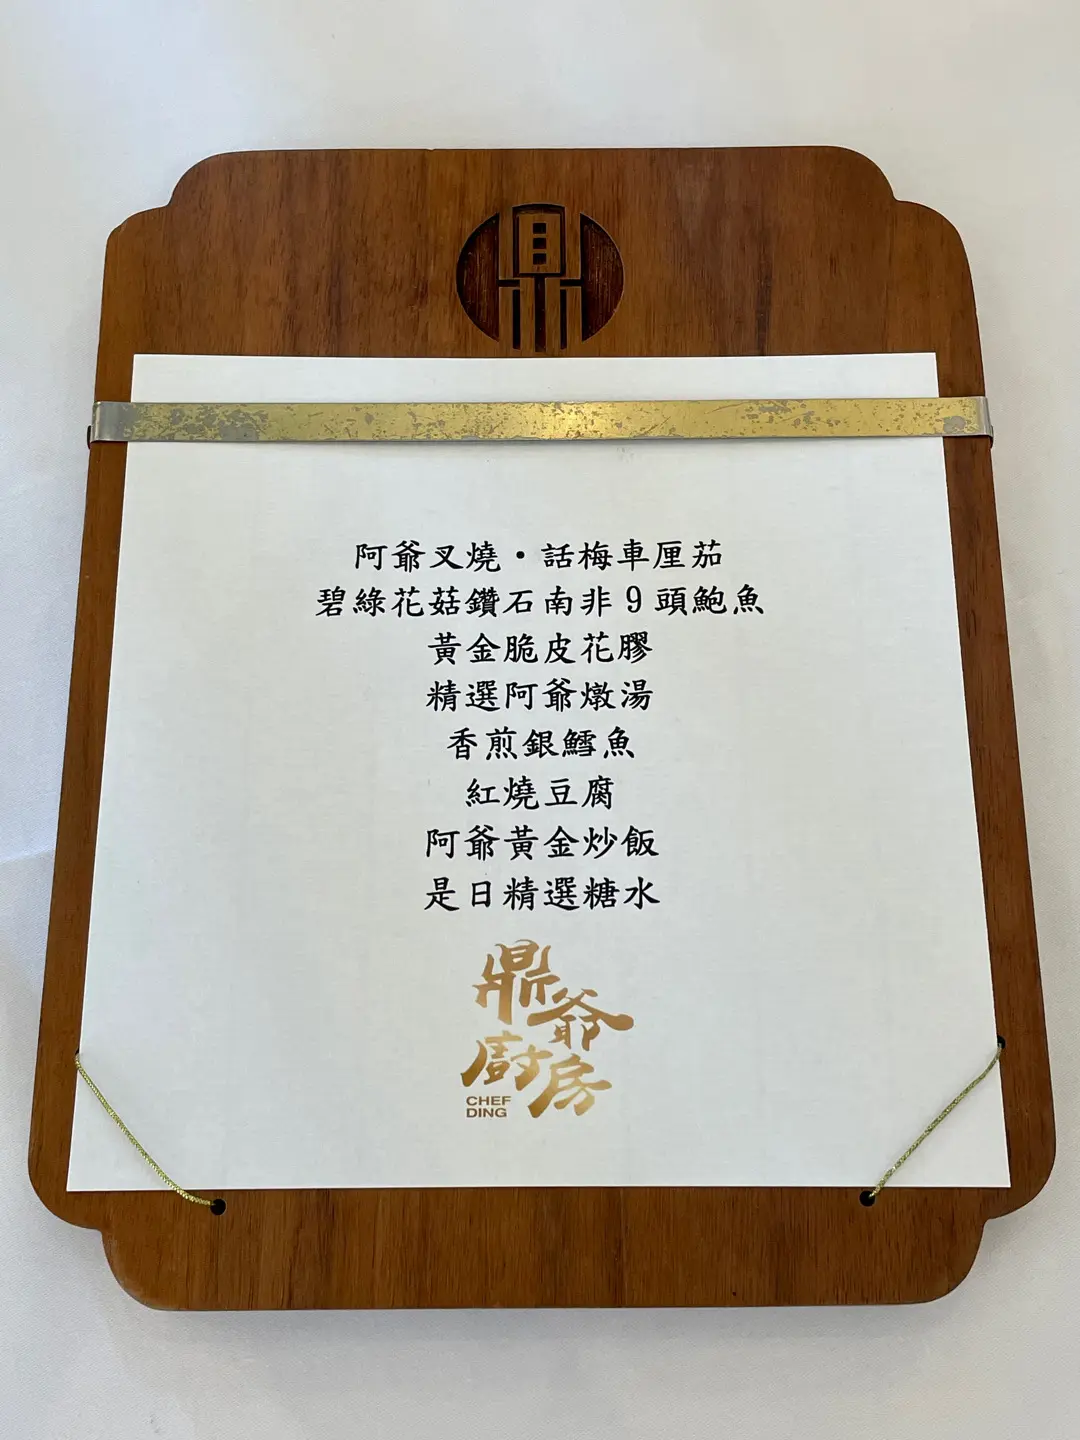 鼎
阿爺叉燒・話梅車厘茄
碧綠花菇鑽石南非9頭鮑魚
黃金脆皮花膠
精選阿爺燉湯
香煎銀鱈魚
紅燒豆腐
阿爺黃金炒飯
是日精選糖水
鼎爺
廚房
CHEF
DING